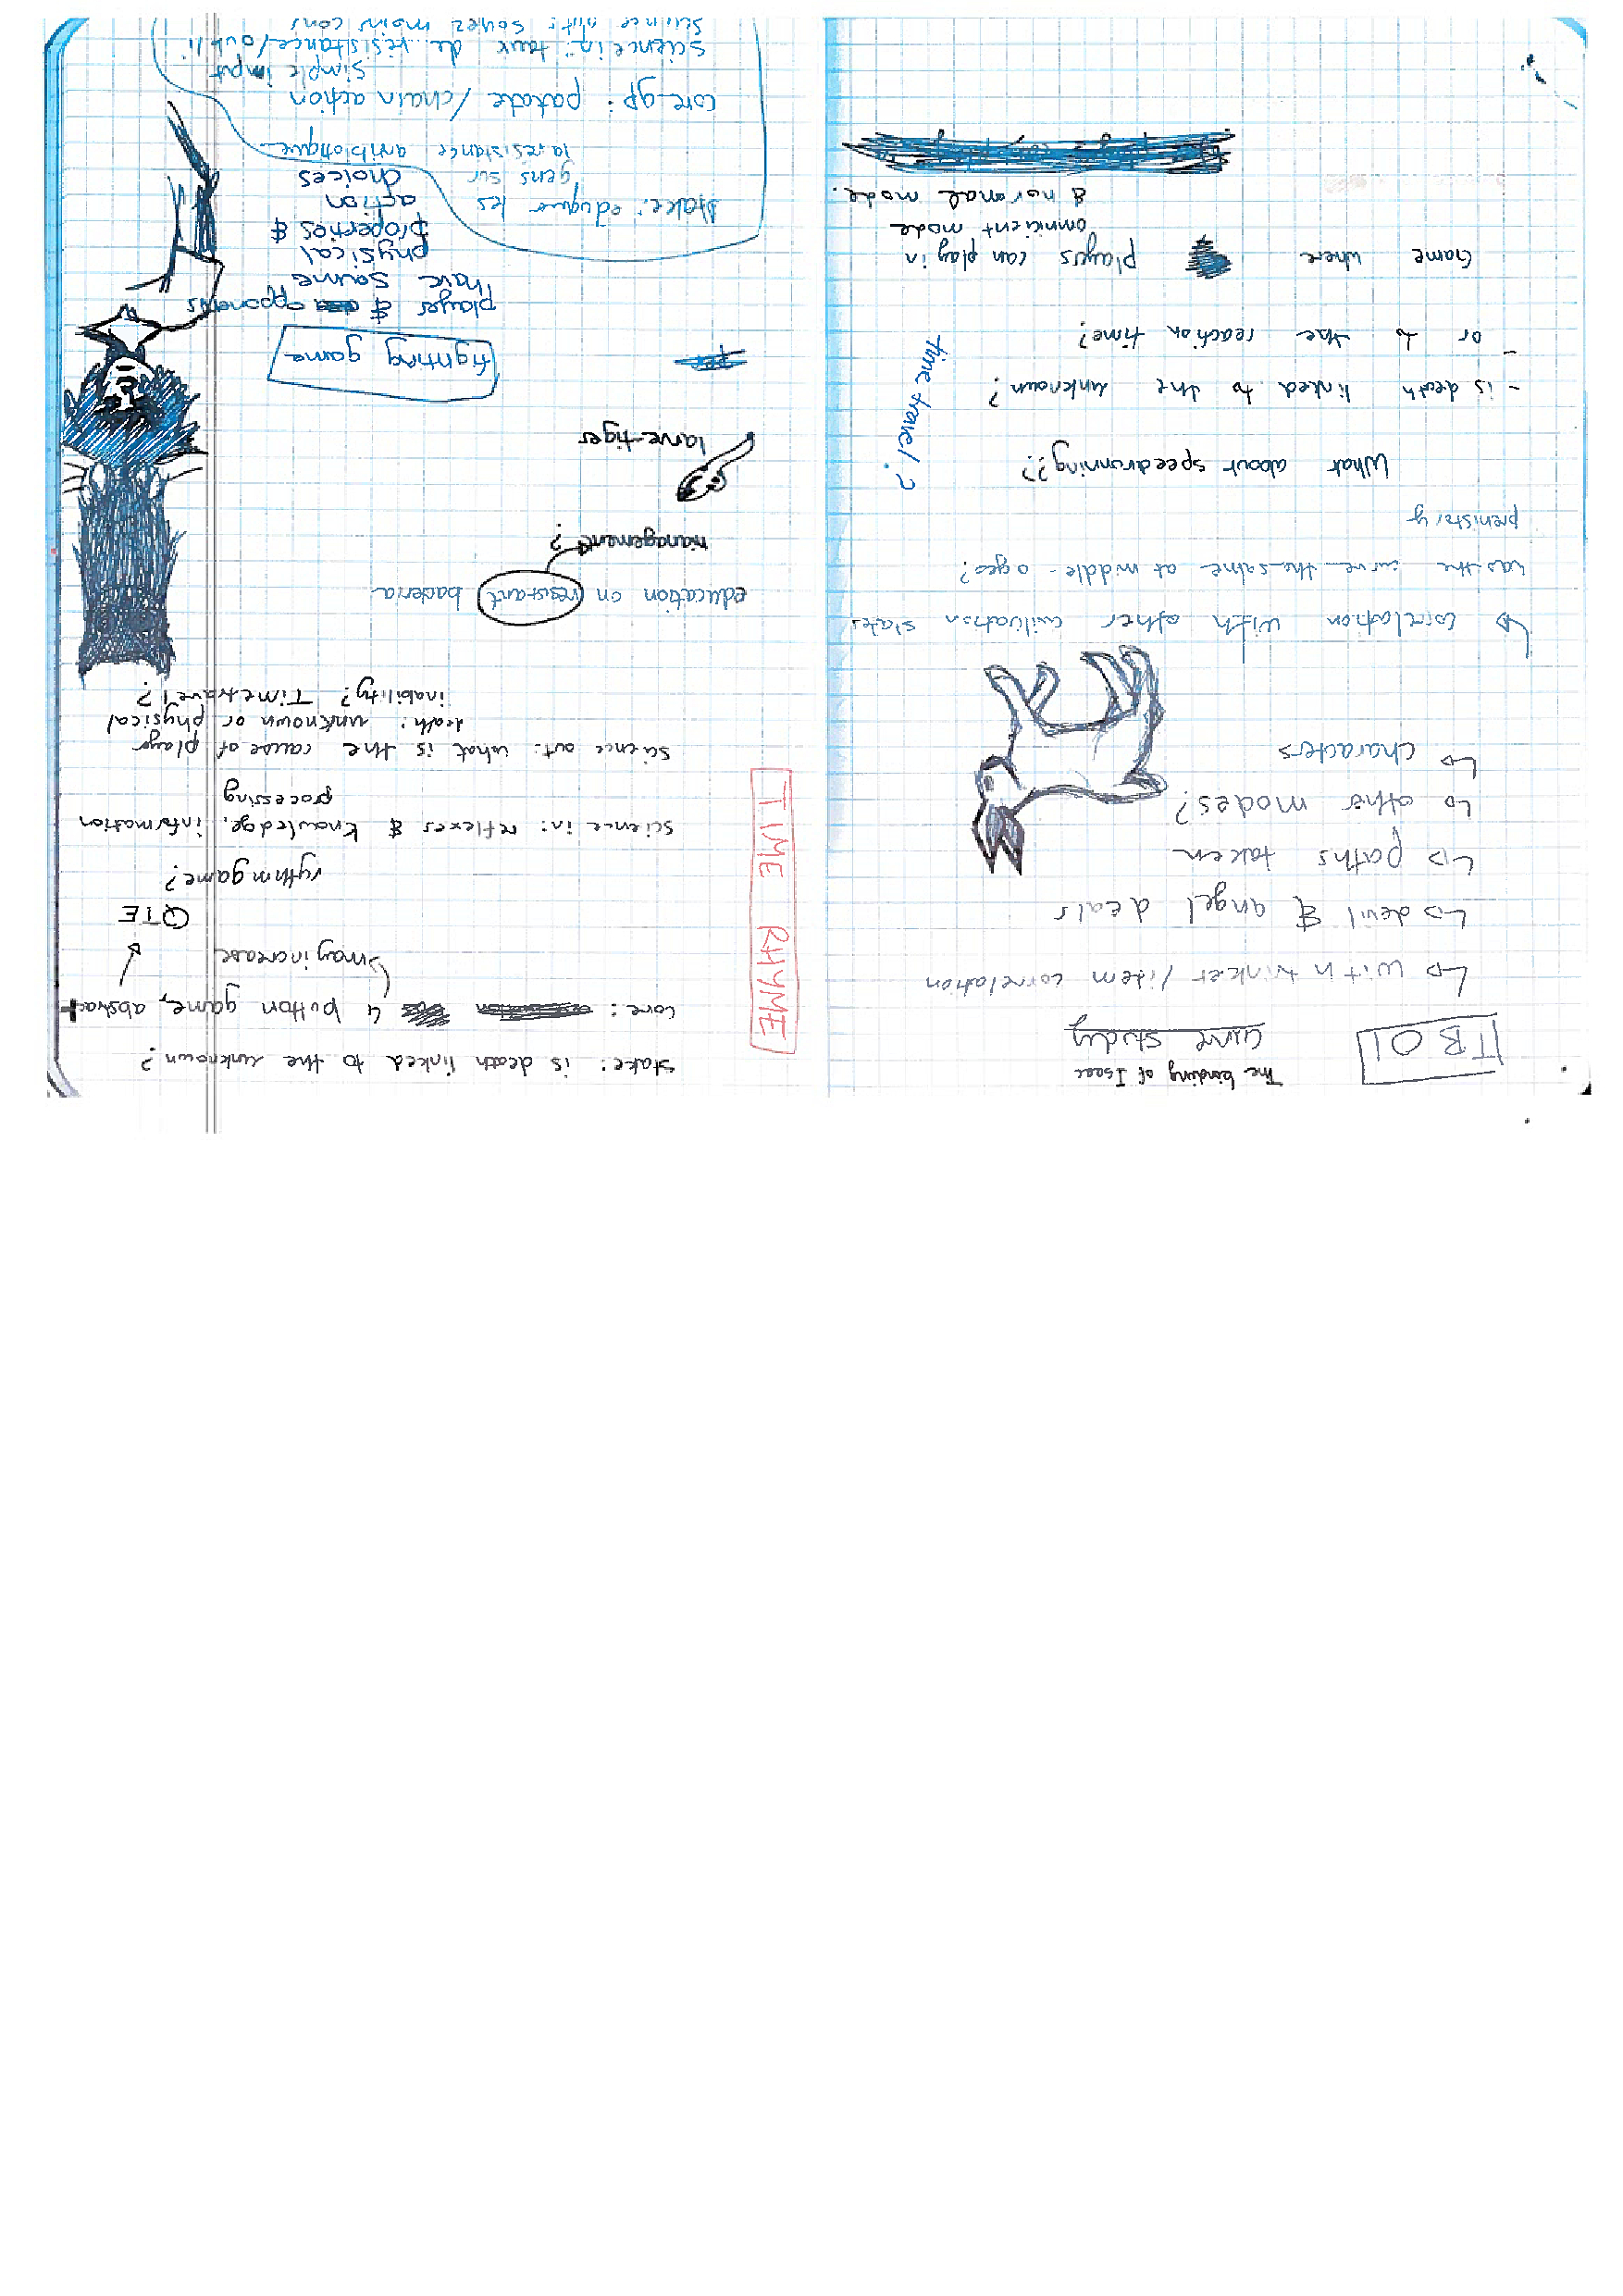 TBOI
The binding of Isaac
curve study
↳ with trinket / item correlation
↳ devil & angel deals
↳ paths taken
↳ other modes?
↳ characters
↳ correlation with other civilisation states
was the curve the same at middle-ages?
prehistory
What about speedruning??
- is death linked to the unknown?
- or to the reaction time?
time travel?
Game where players can play in
omnicient mode
& normal mode.
TIME RHYME
stake: is death linked to the unknown?
core: 4 button game, abstract
↳ may increase
QTE
rythm game?
science in: reflexes & knowledge, information
processing
science out: what is the cause of player
death: unknown or physical
inability? Time travel?
education on resistant bacteria
management?
larve-tiger
fighting game
player & opponents
have saume
physical
properties &
action
choices
stake: eduquer les
gens sur
la resistance antibiotique
core-gp: patate / chain action
simple input
science in: taux de résistance/oubli
science out: soyez moins cons